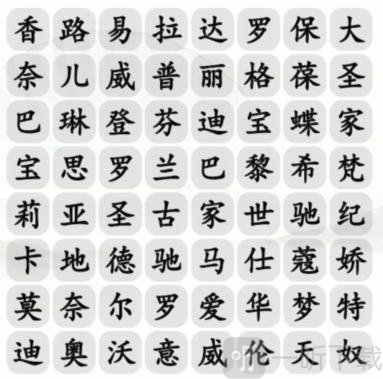 香路易拉达罗保大
奈儿威普丽格葆圣
巴琳登芬迪宝蝶家
宝思罗兰巴黎希梵
莉亚圣古家世驰纪
卡地德驰马仕蔻娇
莫奈尔罗爱华梦特
迪奥沃意威伦天奴
一听下载